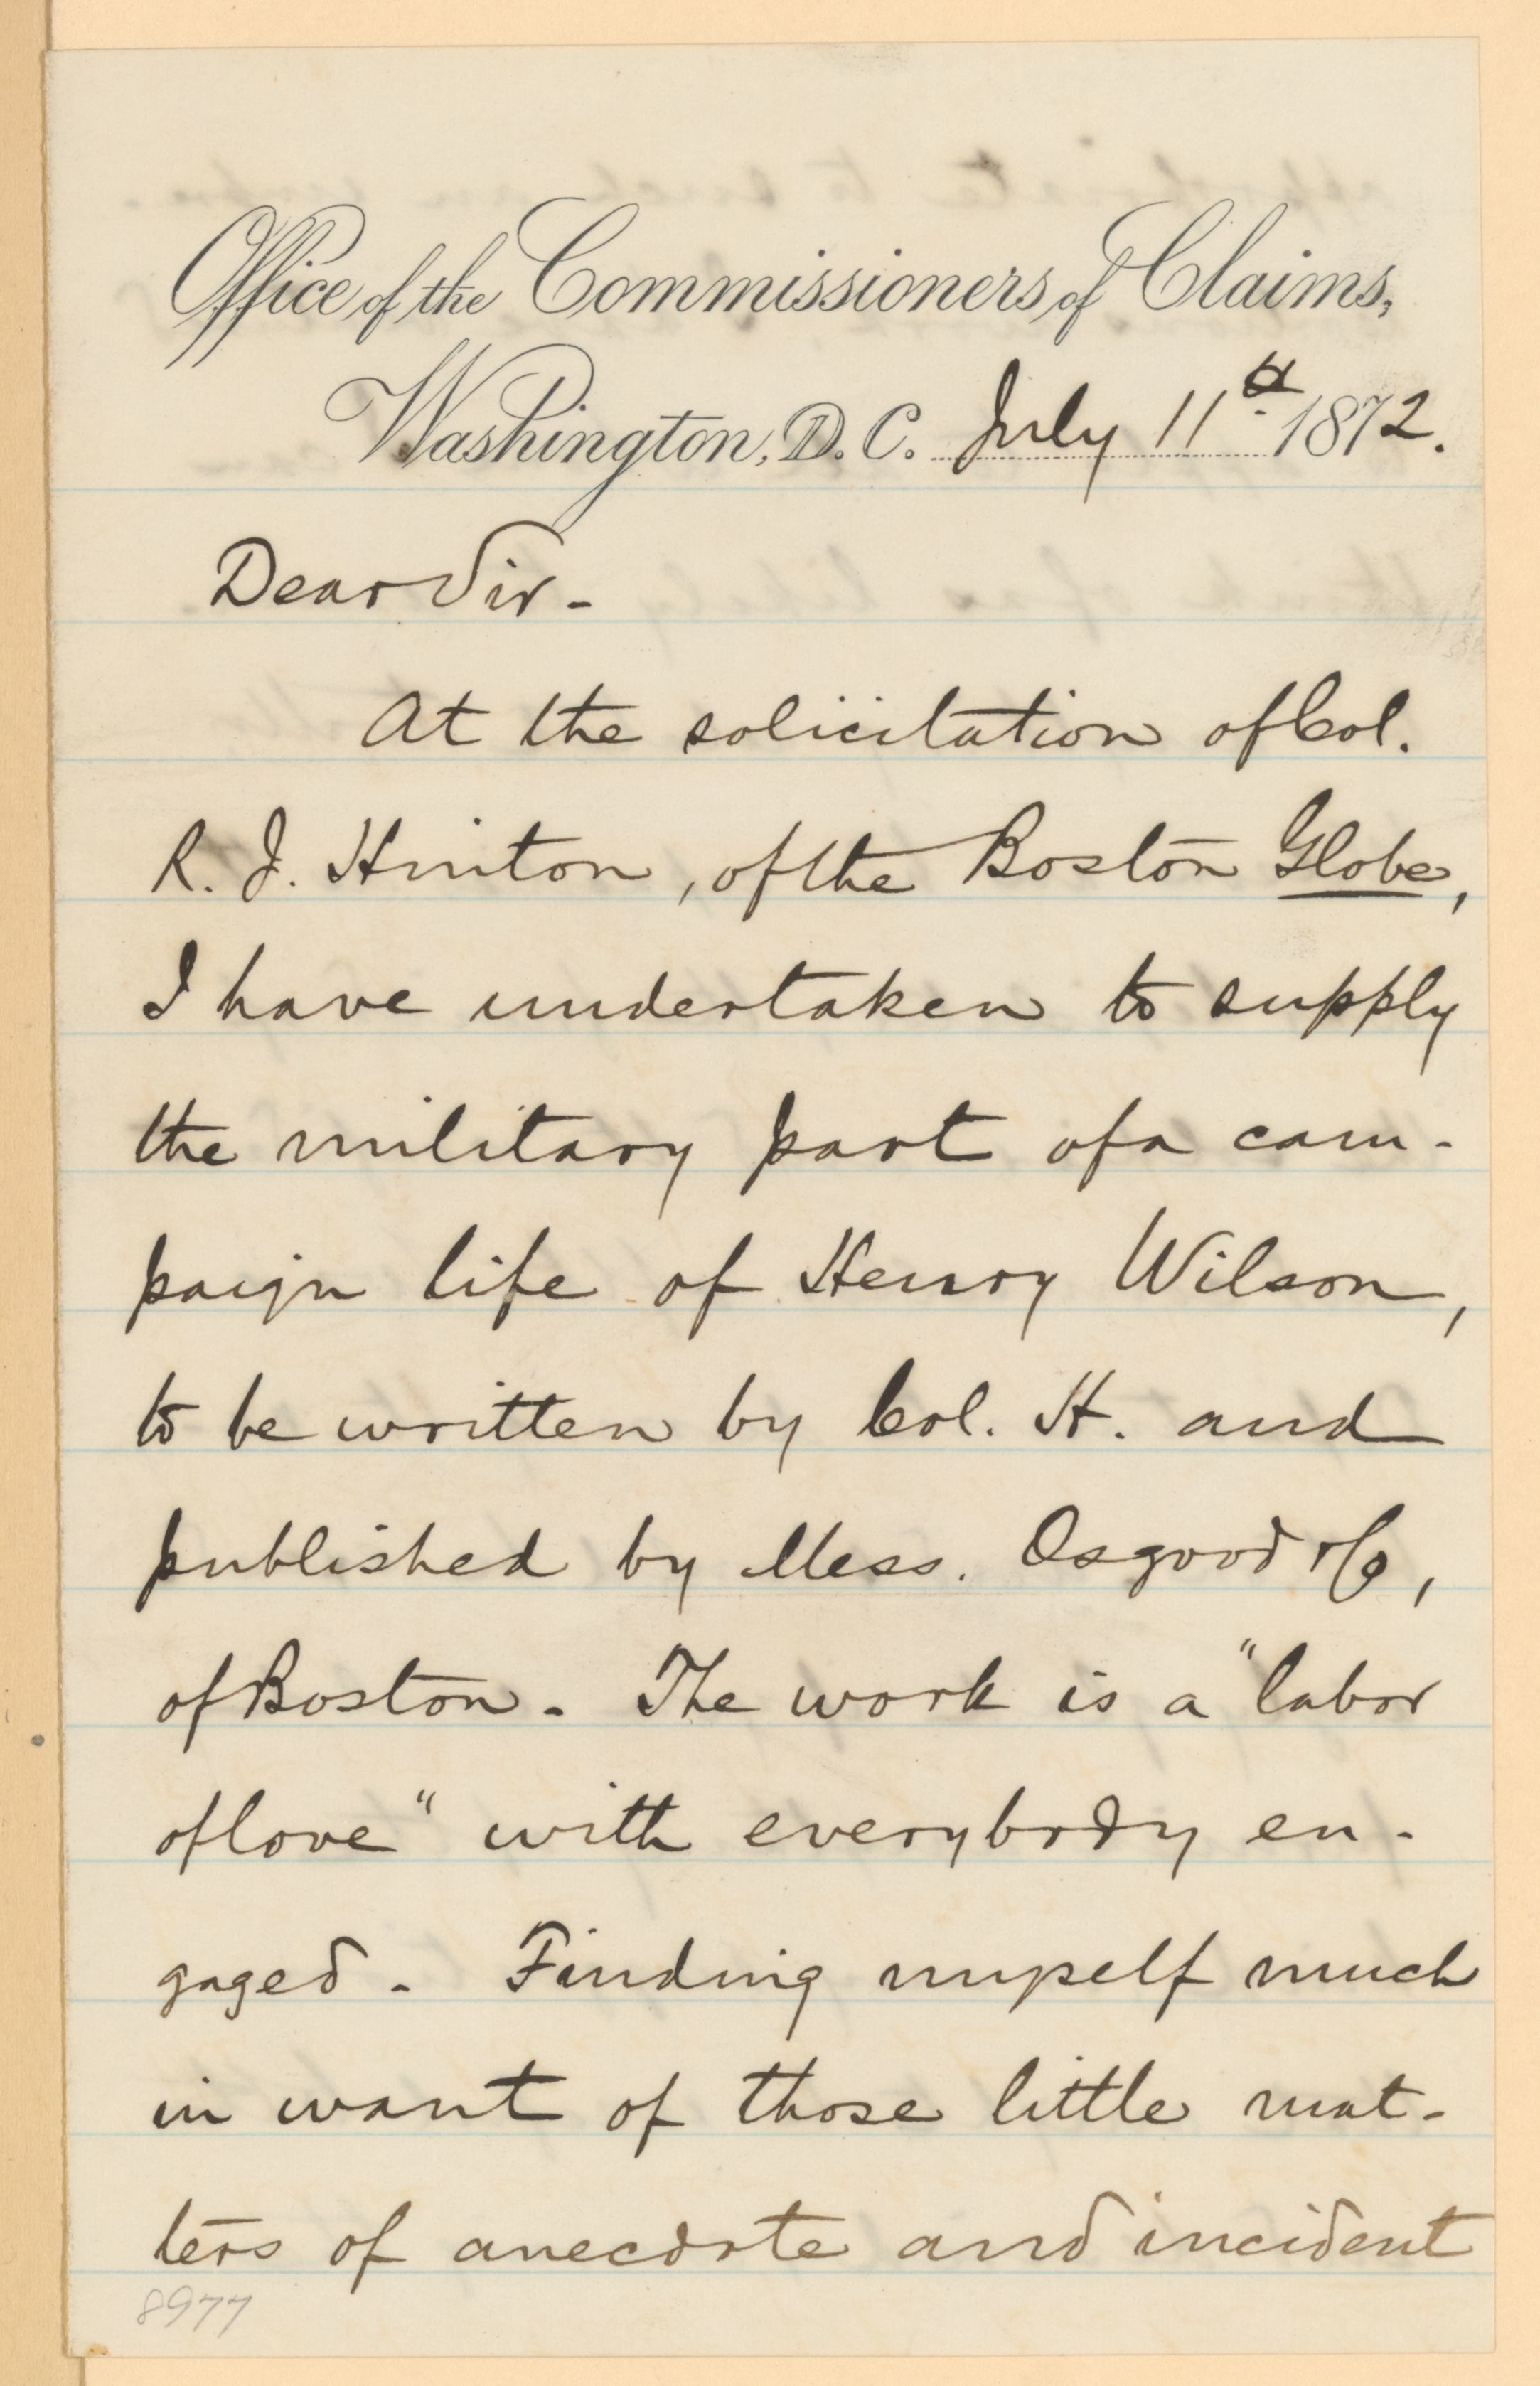 Office of the Commissioners of Claims,
Washington, D. C. July 11th 1872.
Dear Sir -
At the solicitation of Col.
R. J. Hinton, of the Boston Globe,
I have undertaken to supply
the military part of a cam-
paign life of Henry Wilson,
to be written by Col. H. and
published by Mess. Osgood & Co,
of Boston. The work is a "labor
of love" with everybody en-
gaged. Finding myself much
in want of those little mat-
ters of anecdote and incident
8977